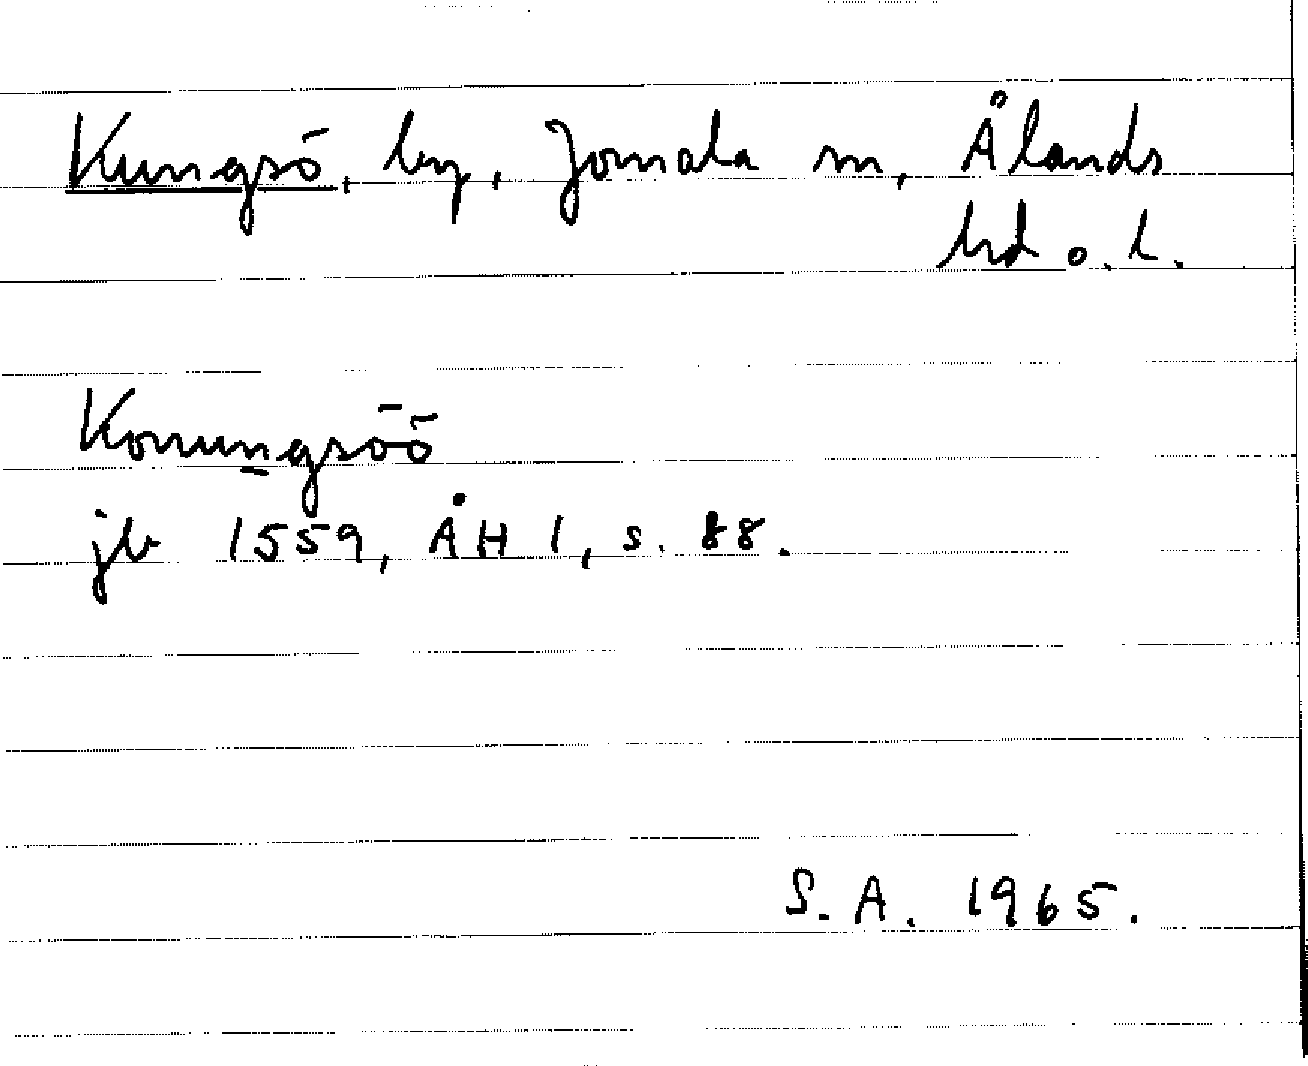 Kungsö, by, Jomala sn, Ålands
hd o. l.
Konungsöö
jb 1559, ÅH 1, s. 88.
S. A. 1965.